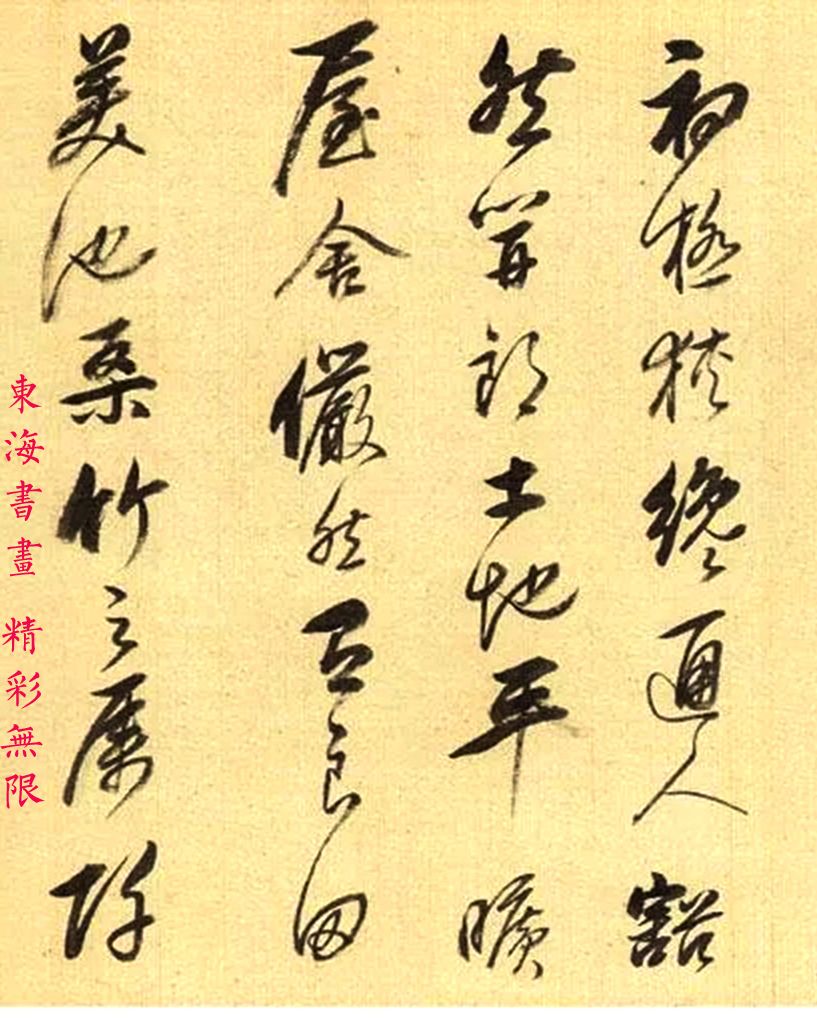 初極狹纔通人豁
然開朗土地平曠
屋舍儼然有良田
美池桑竹之屬阡
東海書畫 精彩無限